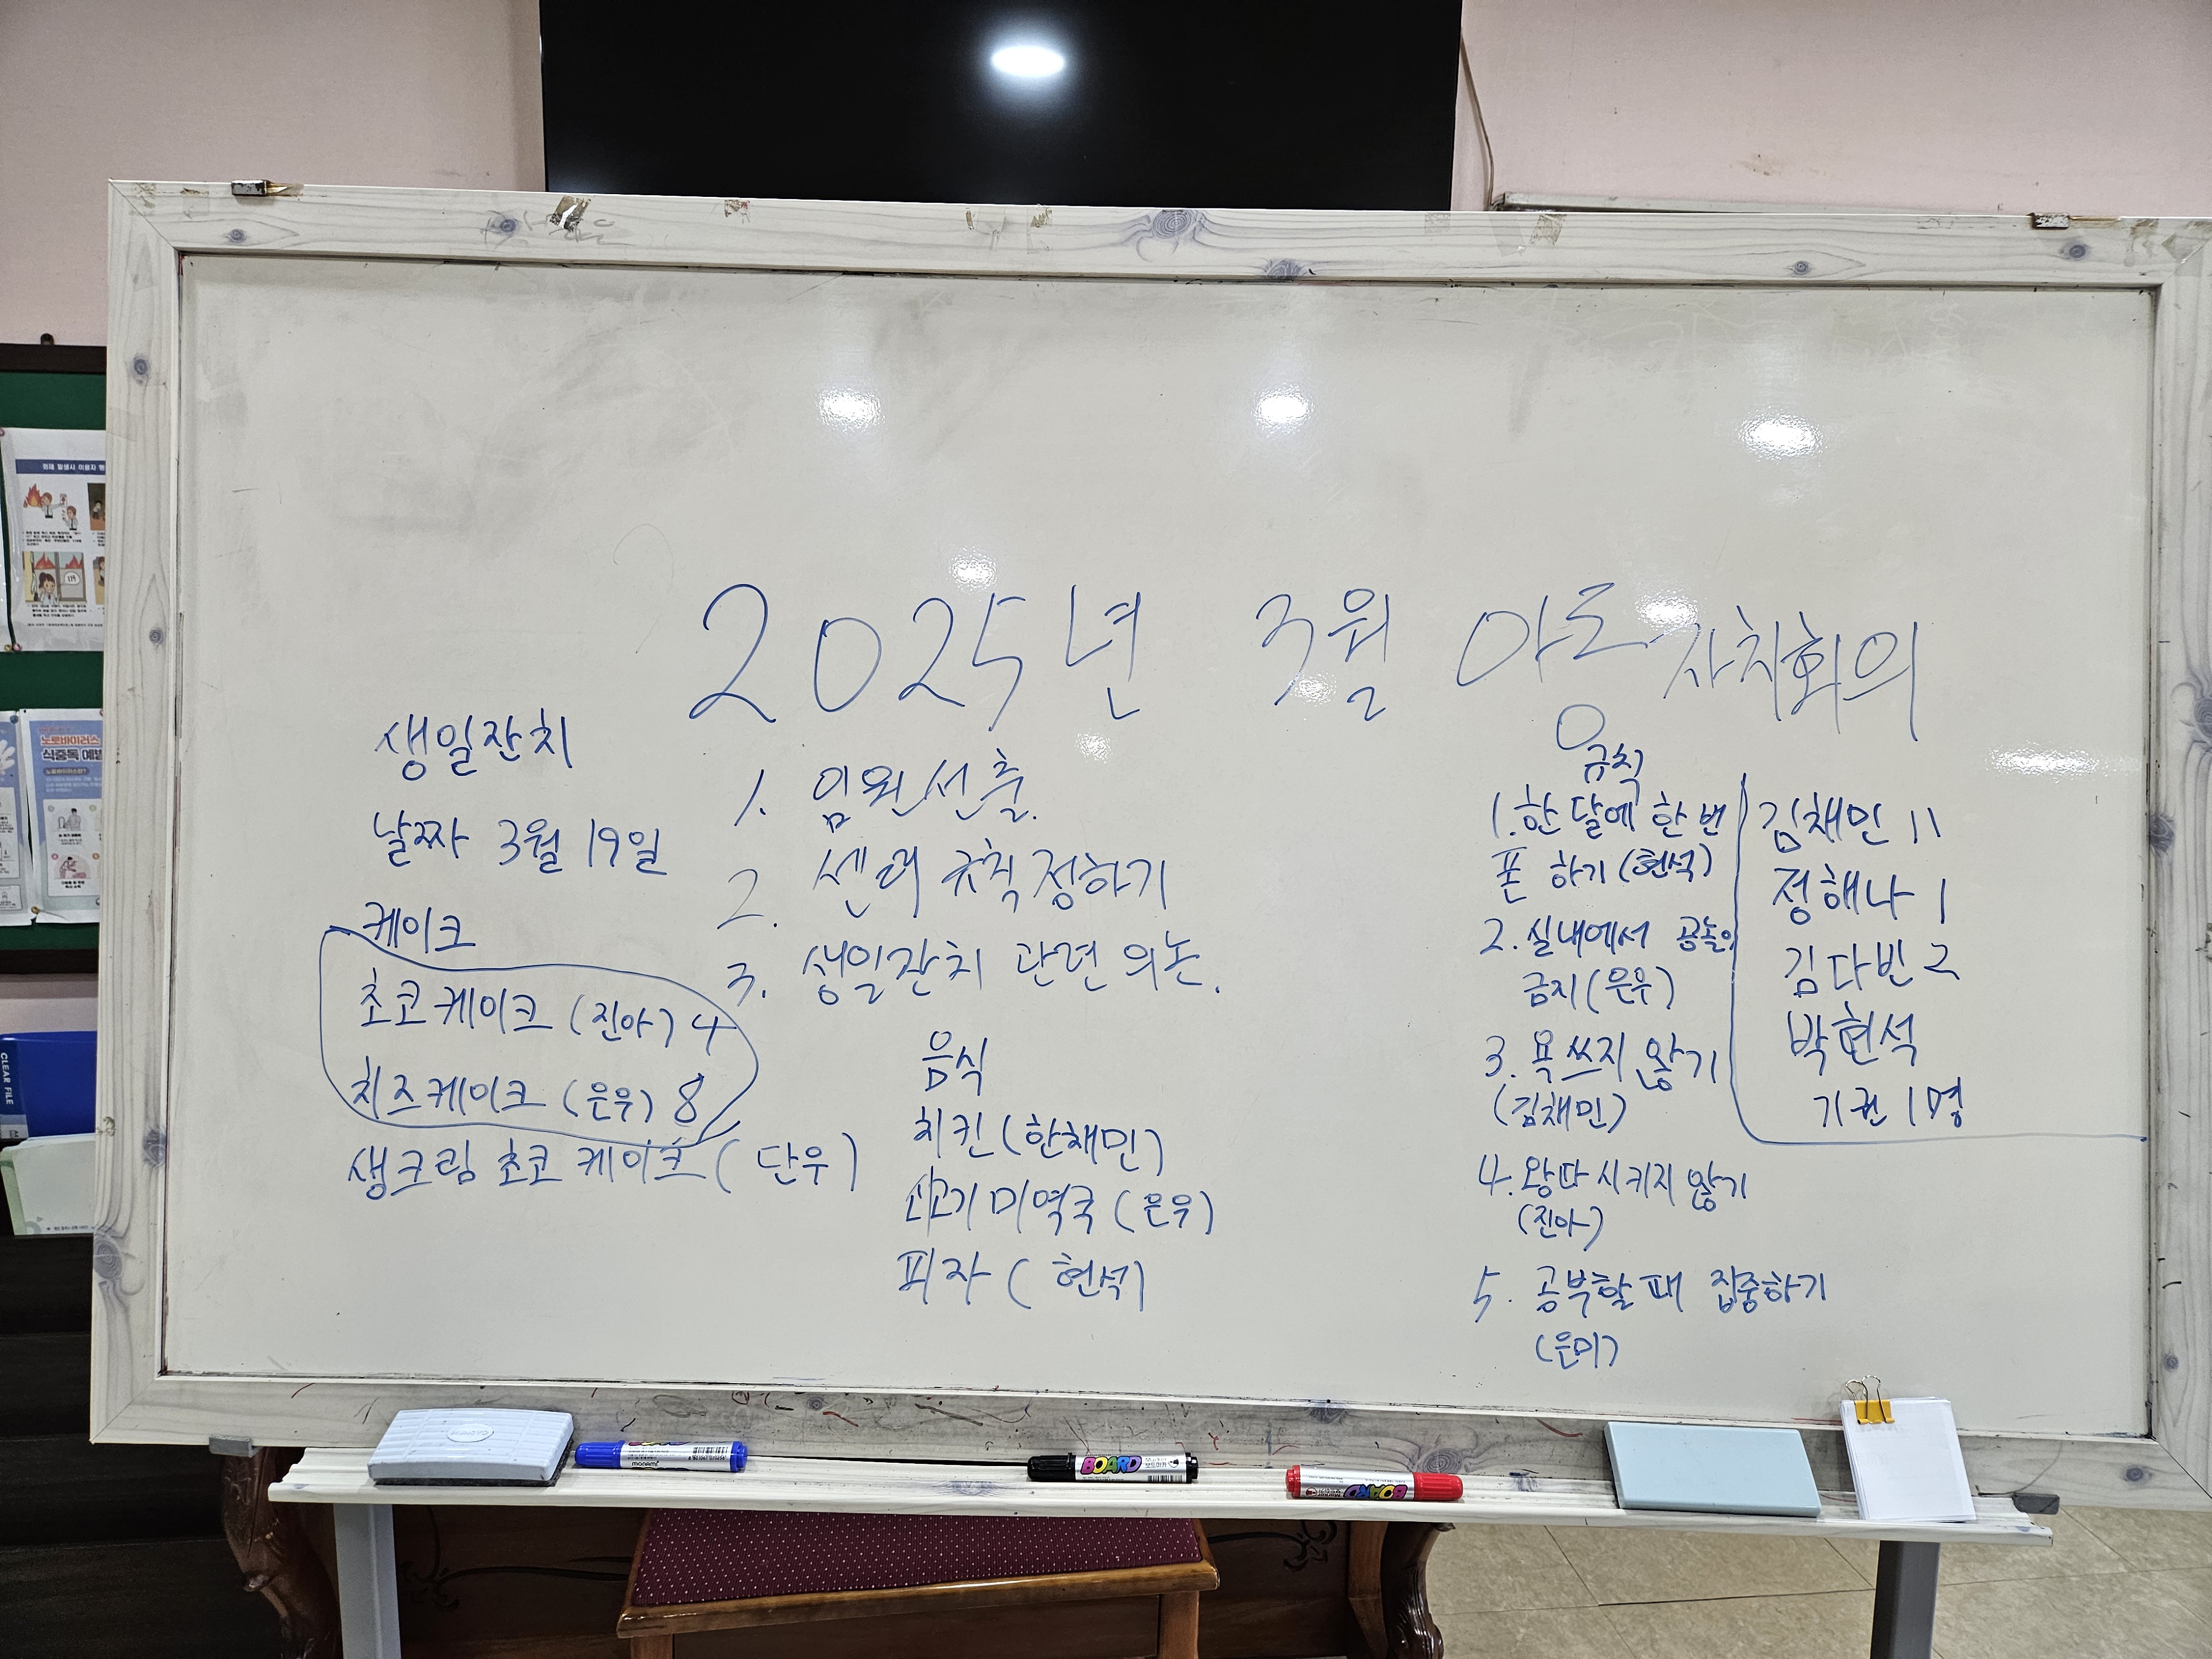 2025년 3월 아동 자치회의
생일잔치
날짜 3월 19일
케이크
초코케이크 (진아) 4
치즈케이크 (은우) 8
생크림 초코 케이크 (단우)
1. 임원선출.
2. 센터 규칙정하기
3. 생일잔치 관련 의논.
음식
치킨 (한채민)
소고기 미역국 (은우)
피자 (현석)
규칙
1. 한 달에 한 번
폰 하기 (현석)
2. 실내에서 공놀이
금지 (은우)
3. 욕 쓰지 않기
(김채민)
4. 왕따 시키지 않기
(진아)
5. 공부할 때 집중하기
(은미)
김채민 11
정해나 1
김다빈 2
박현석
기권 1명
노로바이러스
식중독 예방
CLEAR FILE
monami
BOARD
BOARD